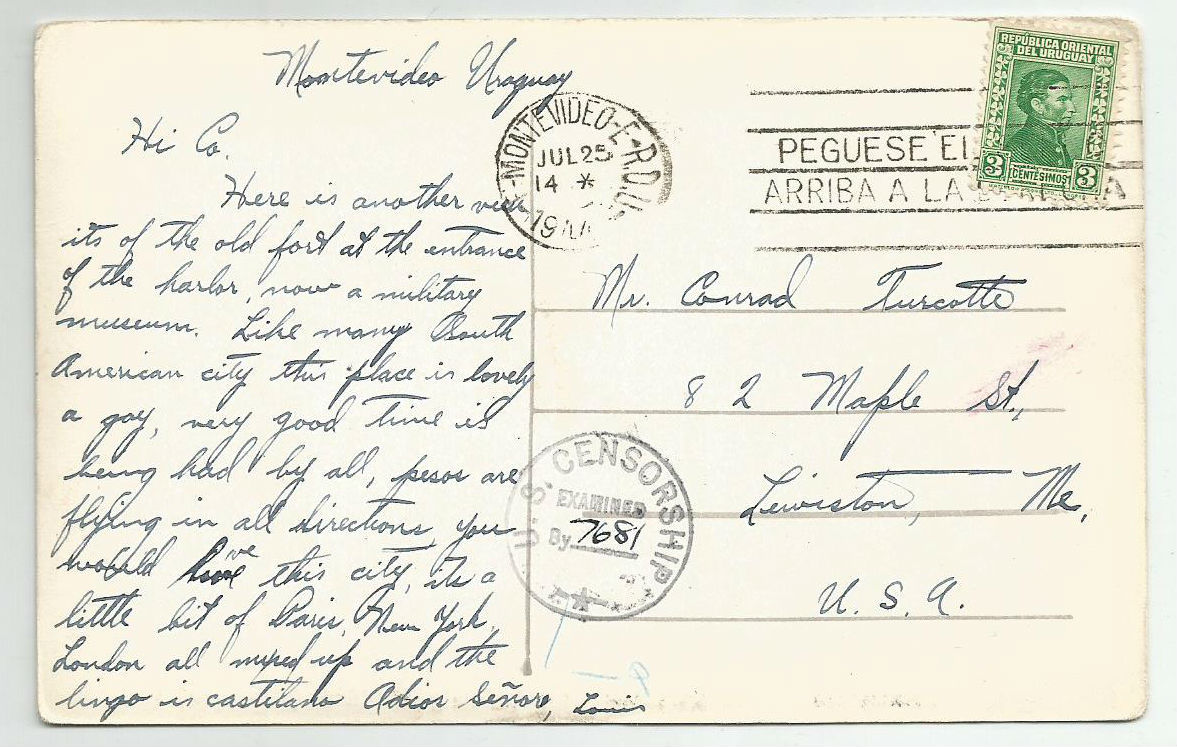 Montevideo Uruguay
Hi Co.
Here is another view
its of the old fort at the entrance
of the harbor, now a military
museum. Like many South
American city this place is lovely
a gay, very good time is
being had by all, pesos are
flying in all directions, you
would love this city, its a
little bit of Paris, New York,
London all mixed up and the
lingo is castilano Adios Señore, Louis
MONTEVIDEO-E-R.O.U.
JUL 25
14 *
PEGUESE EL
ARRIBA A LA DERECHA
REPÚBLICA ORIENTAL
DEL URUGUAY
3 CENTESIMOS 3
Mr. Conrad Turcotte
82 Maple St.,
Lewiston, Me,
U. S. A.
U. S. CENSORSHIP
EXAMINED
By 7681